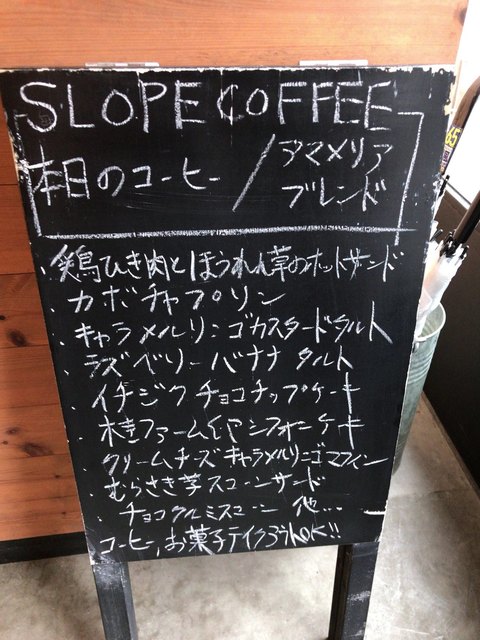 SLOPE COFFEE
本日のコーヒー / アマメリア
ブレンド
・鶏ひき肉とほうれん草のホットサンド
・カボチャプリン
・キャラメルリンゴカスタードタルト
・ラズベリーバナナタルト
・イチジクチョコチップケーキ
・ファーム シフォンケーキ
・クリームチーズキャラメルリンゴマフィン
・むらさき芋スコーンサンド
・チョコクルミスコーン 他...
コーヒー、お菓子テイクアウトOK!!